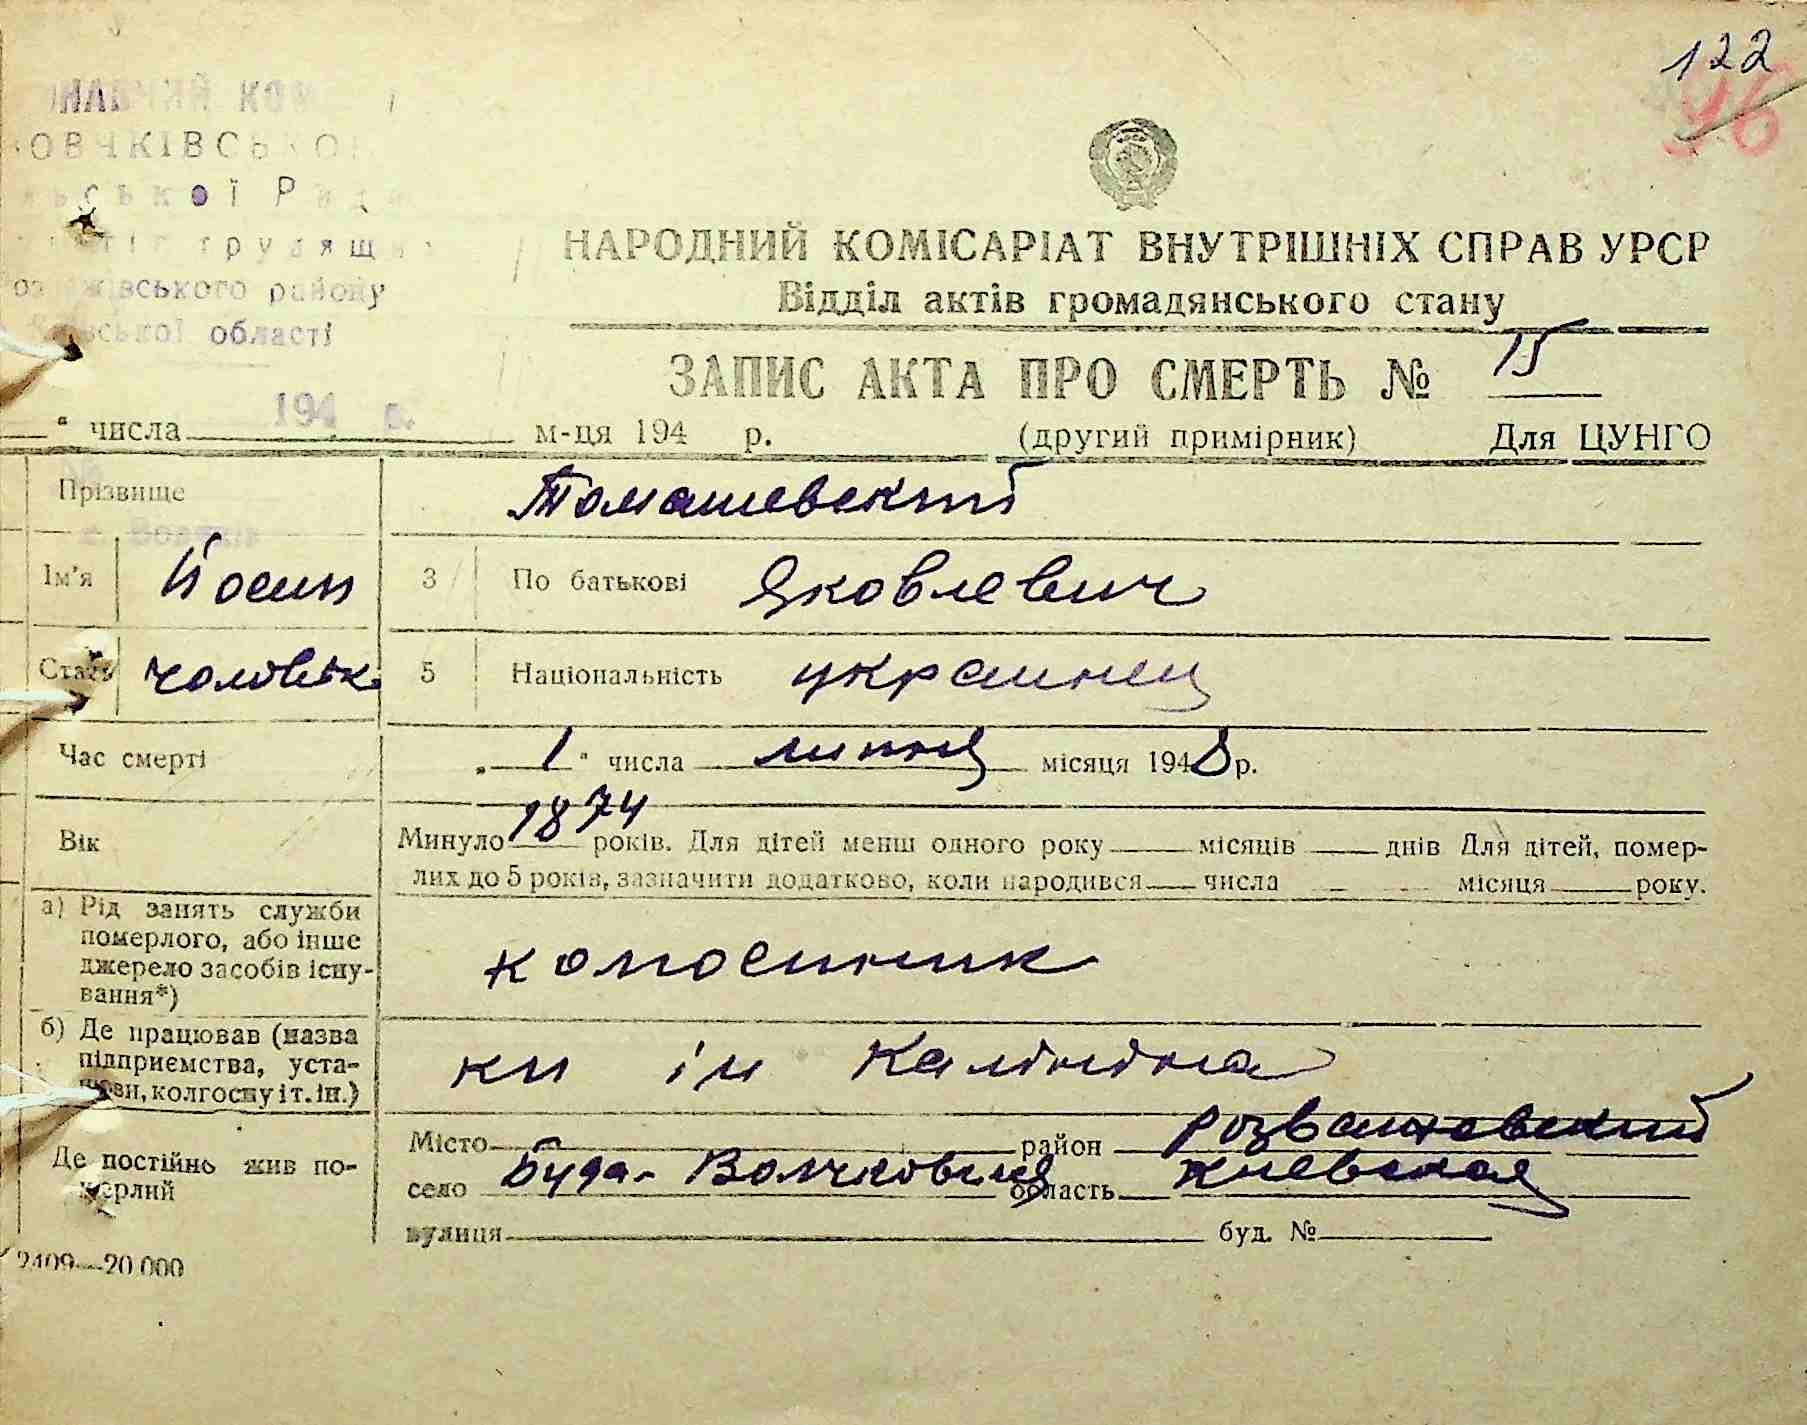 122
96
ОВЧКІВСЬКО
ської Рад
трудящ
району
області
194 р.
НАРОДНИЙ КОМІСАРІАТ ВНУТРІШНІХ СПРАВ УРСР
Відділ актів громадянського стану
ЗАПИС АКТА ПРО СМЕРТЬ № 15
“ числа м-ця 194 р. (другий примірник) Для ЦУНГО
Прізвище Томашевский
Ім’я Йосип 3 По батькові Яковлевич
Стать чоловік. 5 Національність украинец
Час смерті „1“ числа липня місяця 1948 р.
Вік Минуло 1874 років. Для дітей менш одного року місяців днів Для дітей, помер-
лих до 5 років, зазначити додатково, коли народився числа місяця року.
а) Рід занять служби
померлого, або інше
джерело засобів існу-
вання*)
колосиник
б) Де працював (назва
підприємства, уста-
нови, колгоспу і т. ін.)
кп ім Калініна
Де постійно жив по-
мерлий
Місто район Розважевский
село Буда-Волчковская область Киевская
вулиця буд. №
2409—20.000